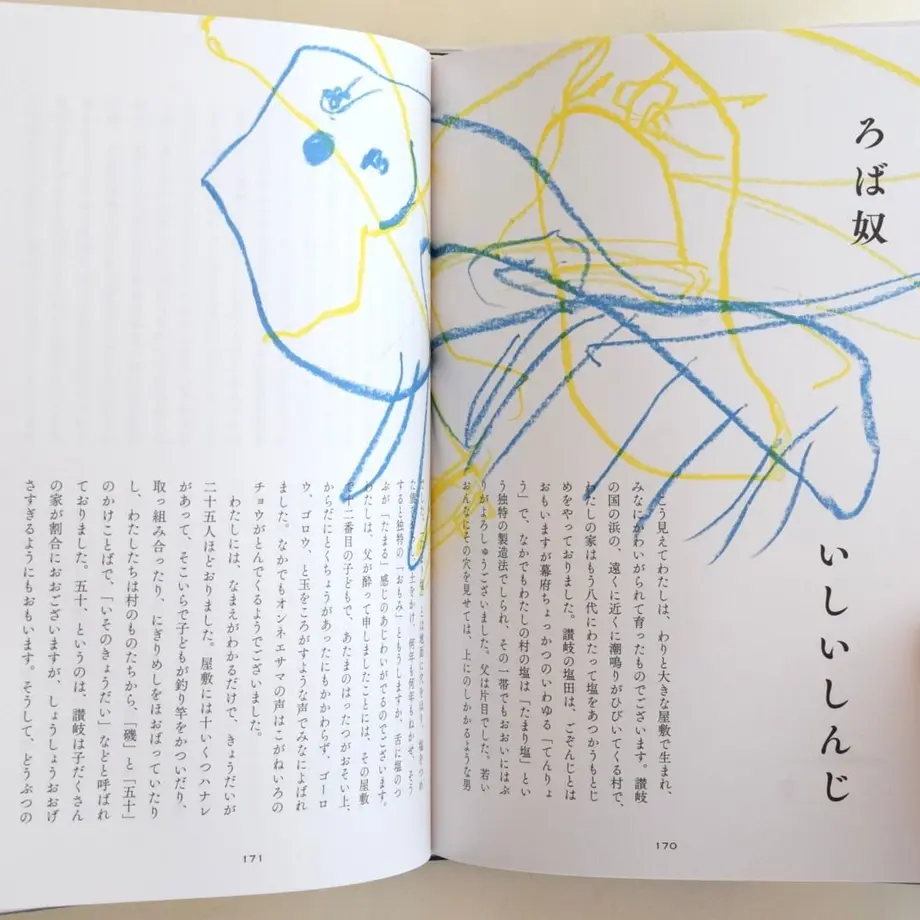 ろば奴
いしいしんじ
こう見えてわたしは、わりと大きな屋敷で生まれ、
みなにかわいがられて育ったものでございます。讃岐
の国の浜の、遠くに近くに潮鳴りがひびいてくる村で、
わたしの家はもう八代にわたって塩をあつかうもとじ
めをやっておりました。讃岐の塩田は、ごぞんじとは
おもいますが幕府ちょっかつのいわゆる「てんりょ
う」で、なかでもわたしの村の塩は「たまり塩」とい
う独特の製造法でしられ、その一帯でもおおいにはぶ
りがよろしゅうございました。父は片目でした。若い
おんなにその穴を見せては、上にのしかかるような男
170
とは地面に穴をほり、
土をかけ、何年も何年もねかせ、そう
すると独特の「おもみ」ともうしますか、舌に塩のつ
ぶが「たまる」感じのあじわいがでるのでございます。
わたしは、父が酔って申しましたことには、その屋敷
で十二番目の子どもで、あたまのはったつがおそい上、
からだにとくちょうがあったにもかかわらず、ゴーロ
ウ、ゴロウ、と玉をころがすような声でみなによばれ
ました。なかでもオンネエサマの声はこがねいろの
チョウがとんでくるようでございました。
わたしには、なまえがわかるだけで、きょうだいが
二十五人ほどおりました。屋敷には十いくつハナレ
があって、そこいらで子どもが釣り竿をかついだり、
取っ組み合ったり、にぎりめしをほおばっていたり
し、わたしたちは村のものたちから、「磯」と「五十」
のかけことばで、「いそのきょうだい」などと呼ばれ
ておりました。五十、というのは、讃岐は子だくさん
の家が割合におおございますが、しょうしょうおおげ
さすぎるようにもおもいます。そうして、どうぶつの
171